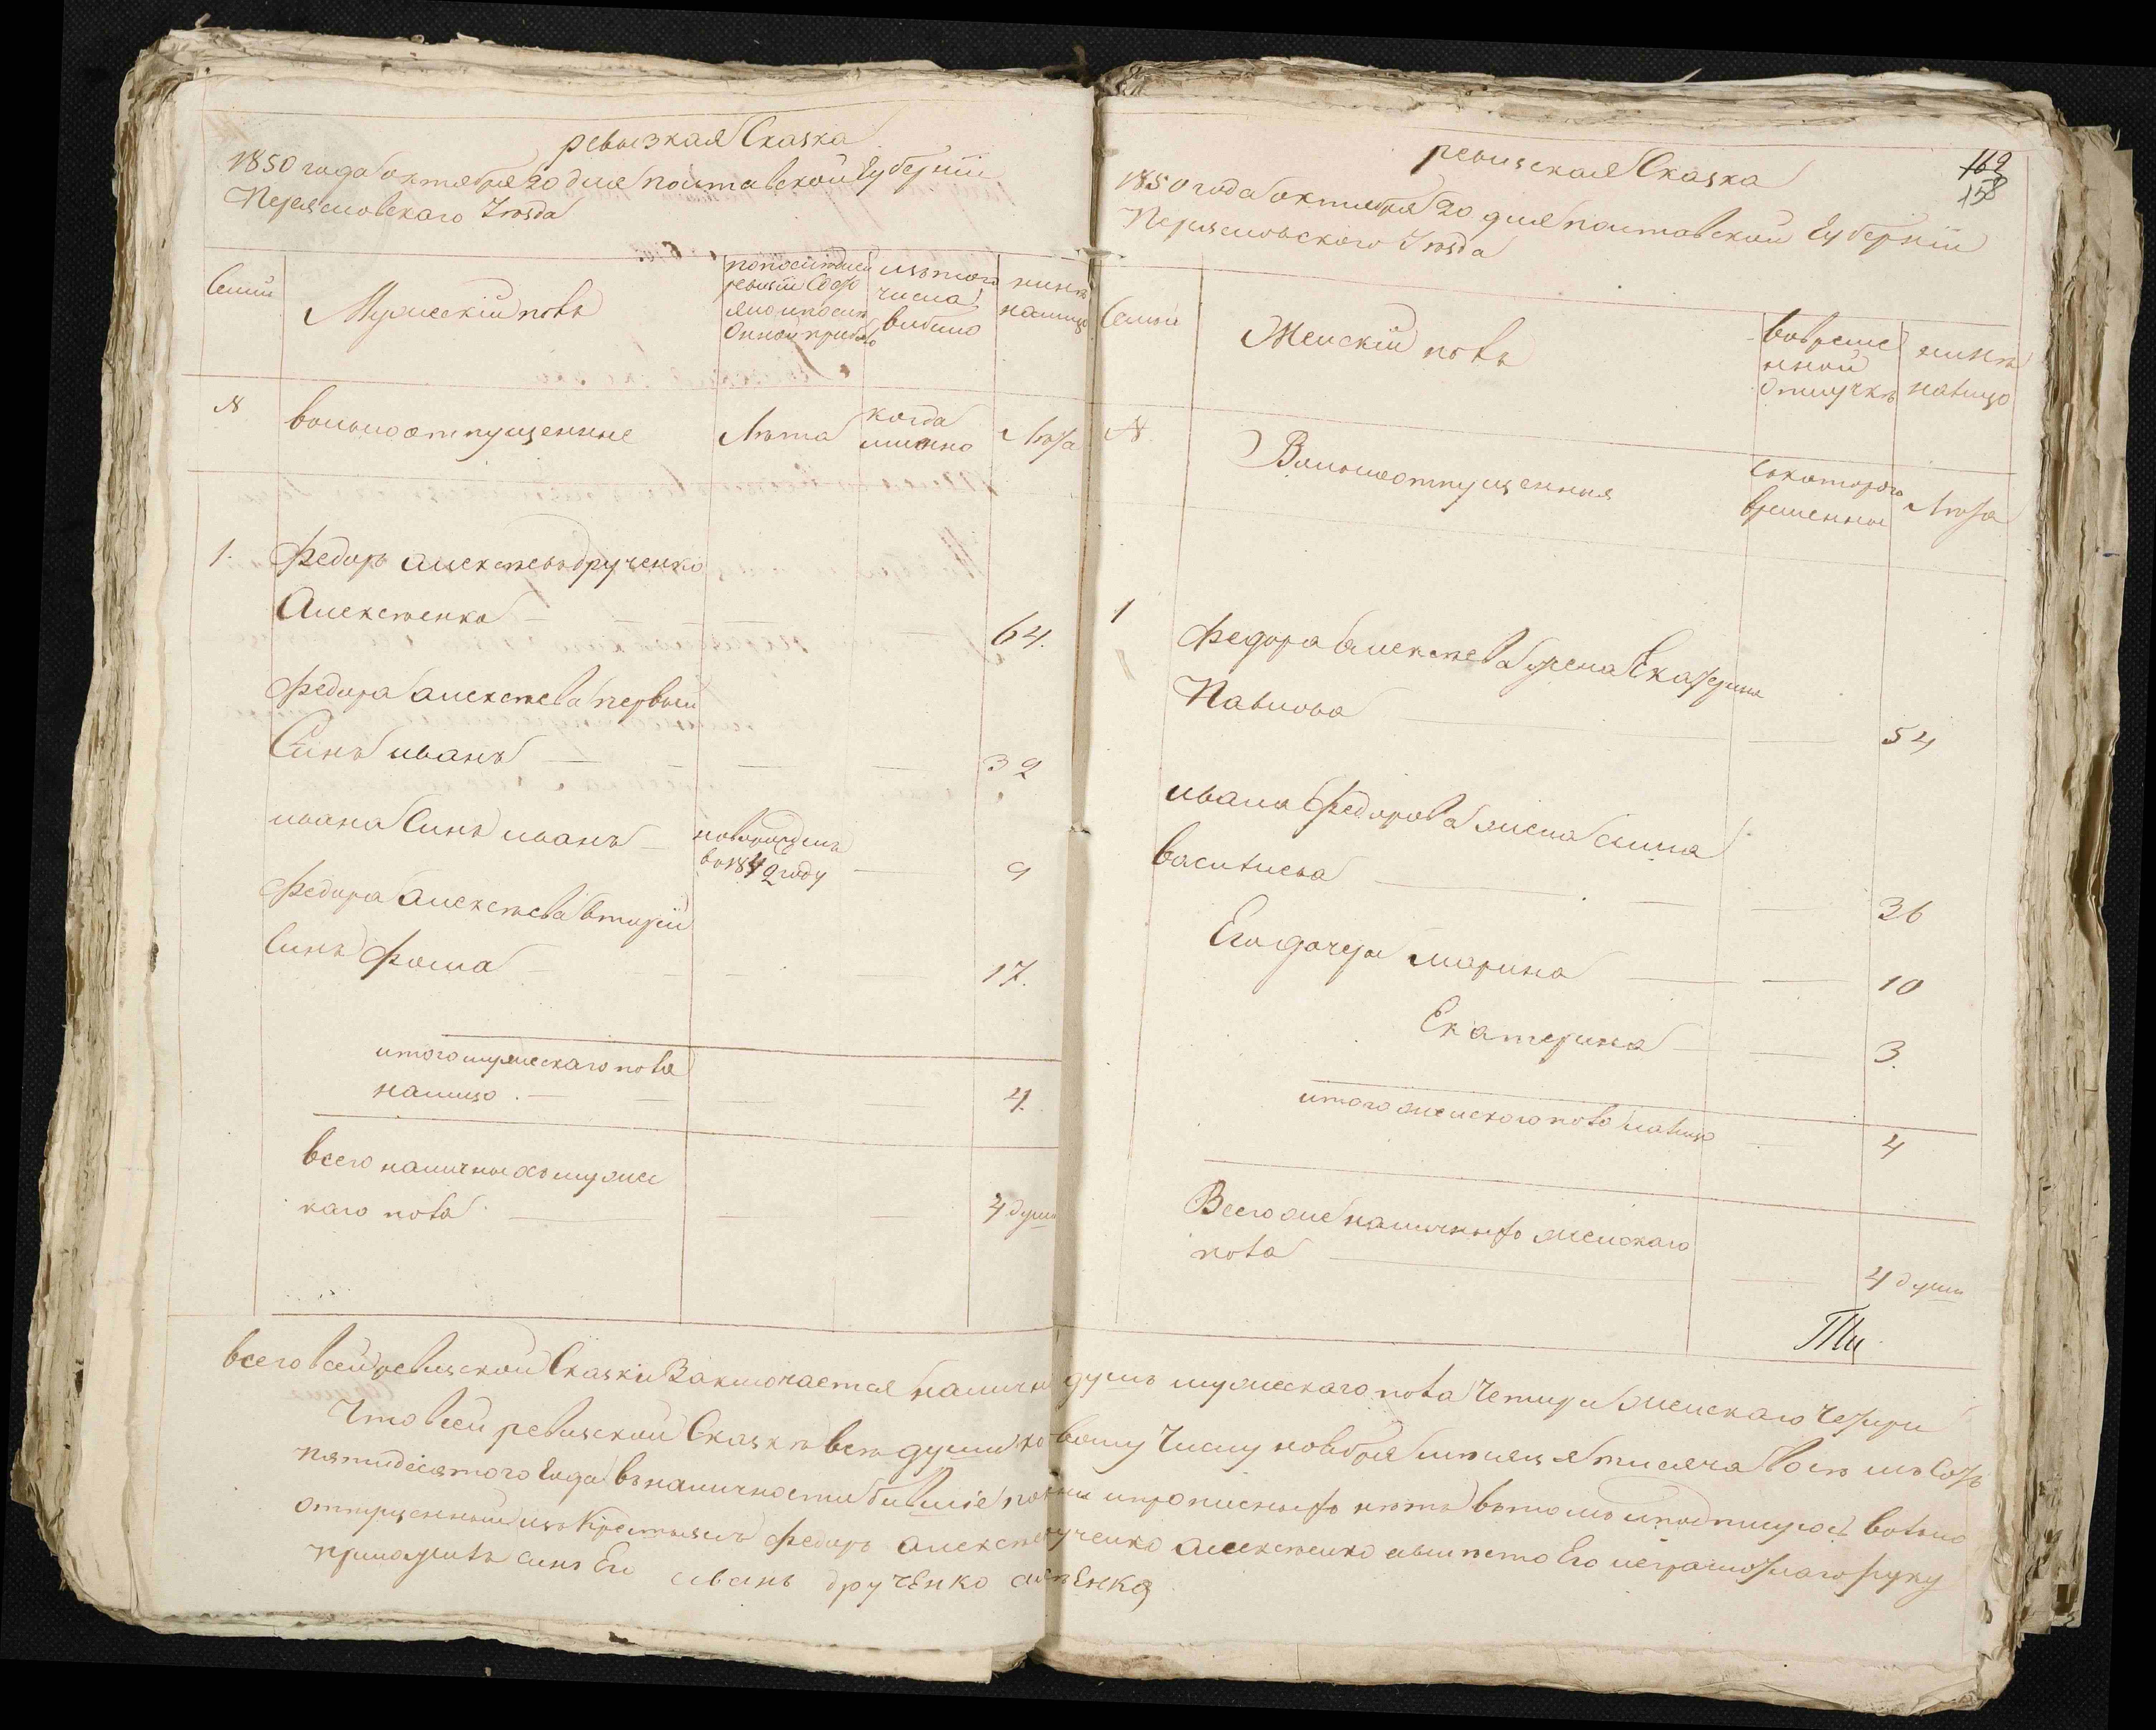 ревызкая Сказка
1850 года октября 20 дня полтавской Губернїи
Переясловского Уезда
Семьи
Мужескїй полъ
по последней ревизїи состояло и после оной прибыло
изъ того числа выбыло
ныне налицо
№
вольноотпущенные
Лѣта
когда именно
Лѣта
1.
Федоръ алексеевъ друченко
Алексеенко
64.
Федора алексеева первый
Синъ иванъ
32
ивана Синъ иванъ
новорожденъ
в 1842 году
9
Федора алексеева вторїй
Синъ Фома
17.
итого мужескаго пола
налицо
4.
всего наличныхъ мужес
каго пола
4 души
162
158
ревизская Сказка
1850 года октября 20 дня полтавской Губернїи
Переясловского Уезда
Семьи
Женскїй полъ
во време
нной
отлучкѣ
ныне
налицо
№
Вольноотпущенныя
съ которого
времени
Лѣта
1
Федора алексеева жена Екатерина
Павлова
54
ивана Федорова жена анна
василиева
36
Его дочери марина
10
Екатерина
3.
итого женского пола налицо
4
Всего же наличныхъ женскаго
пола
4 души
всего всей ревизской Сказки Заключается налични душъ мужескаго пола Четири женскаго Четири
Что всей ревизской Сказкѣ всѣ души по вому Числу ноября месяця тисяча восѣмъ Сотъ
пятидесятого Года въ наличности бившїе показани и прописныхъ нѣтъ въ томъ и подписуюсь вольно
отпущенный изъ Крестьянъ Федоръ алексеевъ друченко алексеенко а вместо Его неграмотнаго руку
приложилъ синъ Его иванъ друЧЕнко